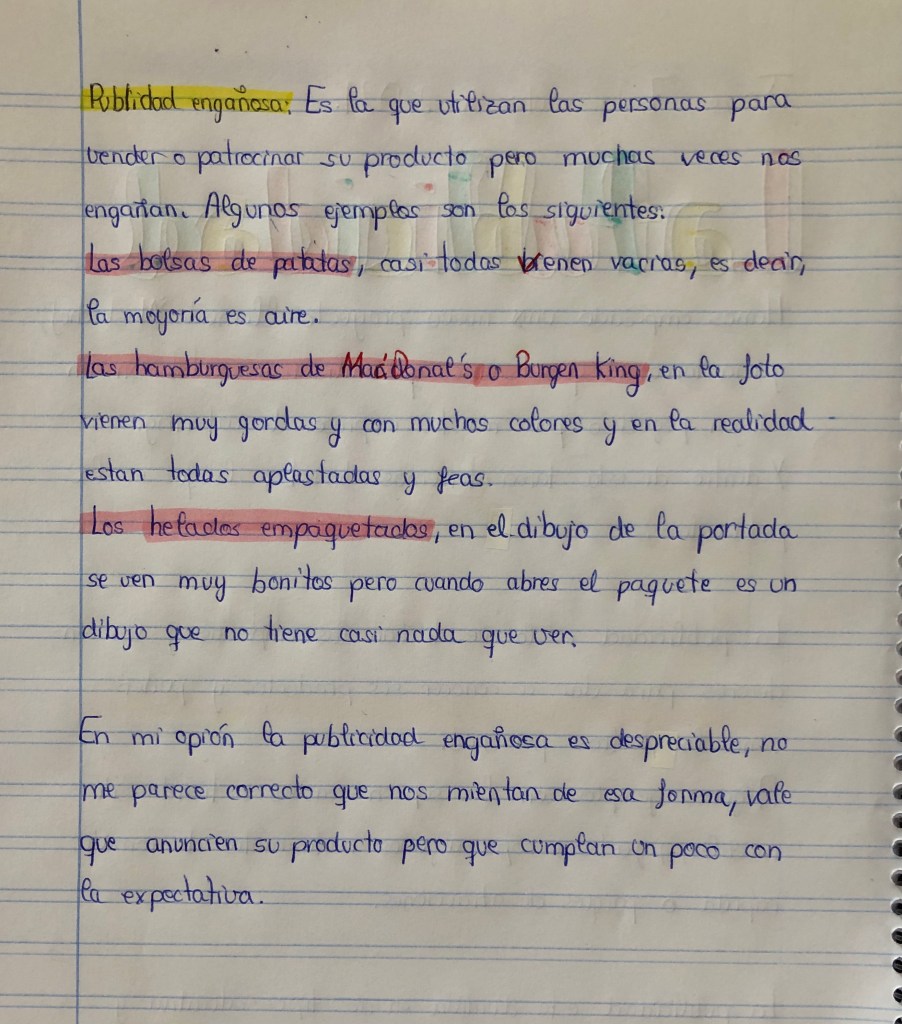 Publidad engañosa: Es la que utilizan las personas para
vender o patrocinar su producto pero muchas veces nos
engañan. Algunos ejemplos son los siguientes:
Las bolsas de patatas, casi todas vienen vacias, es decir,
la mayoría es aire.
Las hamburguesas de Mac'Donal's o Burgen King, en la foto
vienen muy gordas y con muchos colores y en la realidad
estan todas aplastadas y feas.
Los helados empaquetados, en el dibujo de la portada
se ven muy bonitos pero cuando abres el paquete es un
dibujo que no tiene casi nada que ver.
En mi opión la publicidad engañosa es despreciable, no
me parece correcto que nos mientan de esa forma, vale
que anuncien su producto pero que cumplan un poco con
la expectativa.